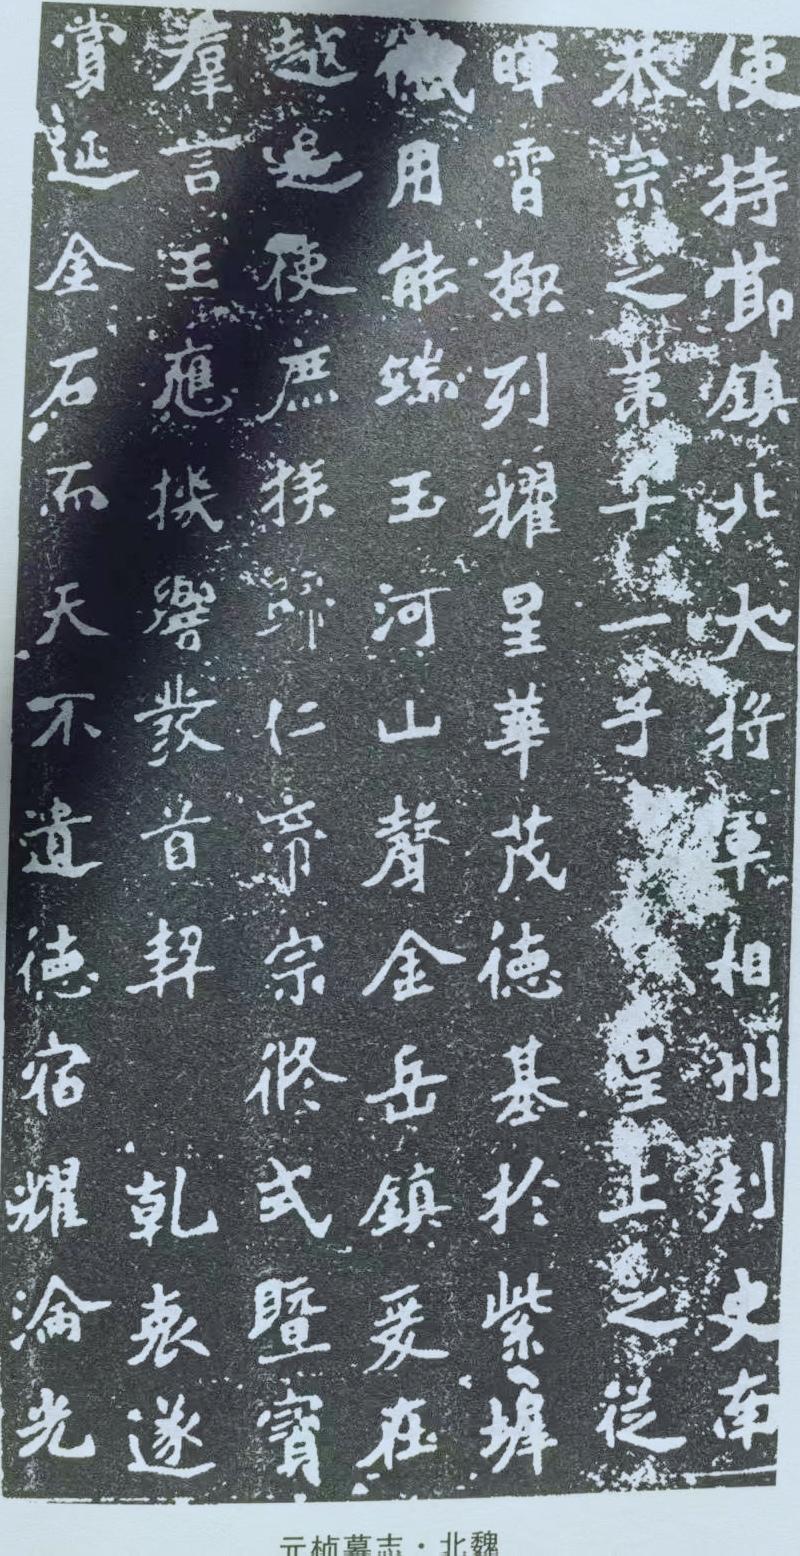 使持節鎮北大將軍相州刺史南
恭宗之第十一子 皇上之從
暉霄極列耀星華茂德基於紫墀
徽用能端玉河山聲金岳鎮爰在
越是使庶族歸仁帝宗攸式暨寶
羣言王應機響發首契 乾衷遂
賞延金石而天不遺德宿耀淪光
元桢墓志·北魏